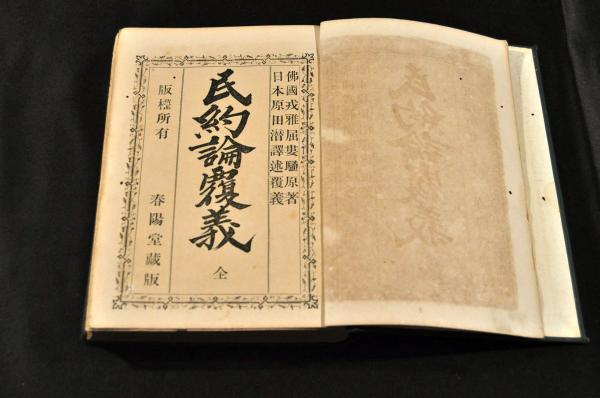 佛國戎雅屈婁騷原著
日本原田潜譯述覆義
民約論覆義
全
版權所有
春陽堂藏版